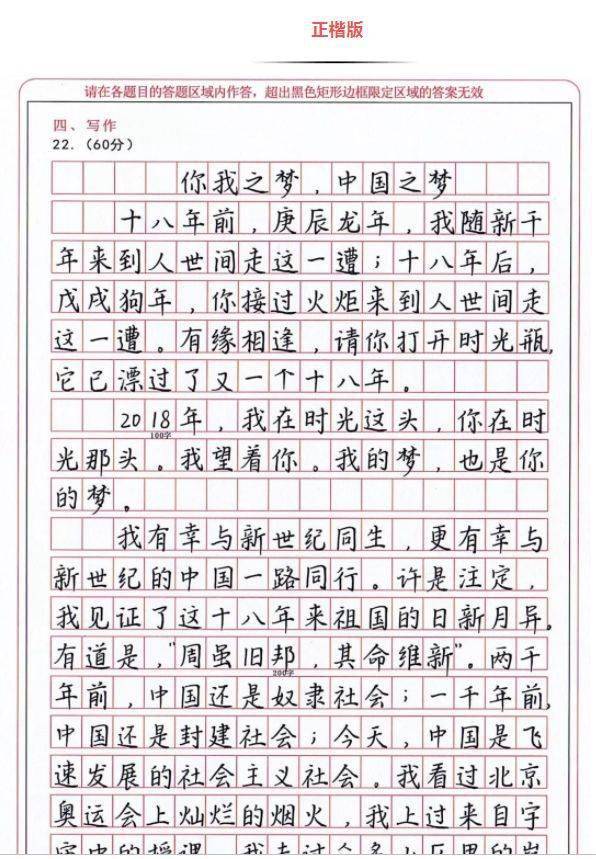 正楷版
请在各题目的答题区域内作答，超出黑色矩形边框限定区域的答案无效
四、写作
22.（60分）
你我之梦，中国之梦
十八年前，庚辰龙年，我随新千
年来到人世间走这一遭；十八年后，
戊戌狗年，你接过火炬来到人世间走
这一遭。有缘相逢，请你打开时光瓶，
它已漂过了又一个十八年。
2018年，我在时光这头，你在时
100字
光那头。我望着你。我的梦，也是你
的梦。
我有幸与新世纪同生，更有幸与
新世纪的中国一路同行。许是注定，
我见证了这十八年来祖国的日新月异。
有道是，“周虽旧邦，其命维新”。两千
200字
年前，中国还是奴隶社会；一千年前，
中国还是封建社会；今天，中国是飞
速发展的社会主义社会。我看过北京
奥运会上灿烂的烟火，我上过来自宇
宙中的授课，我走过